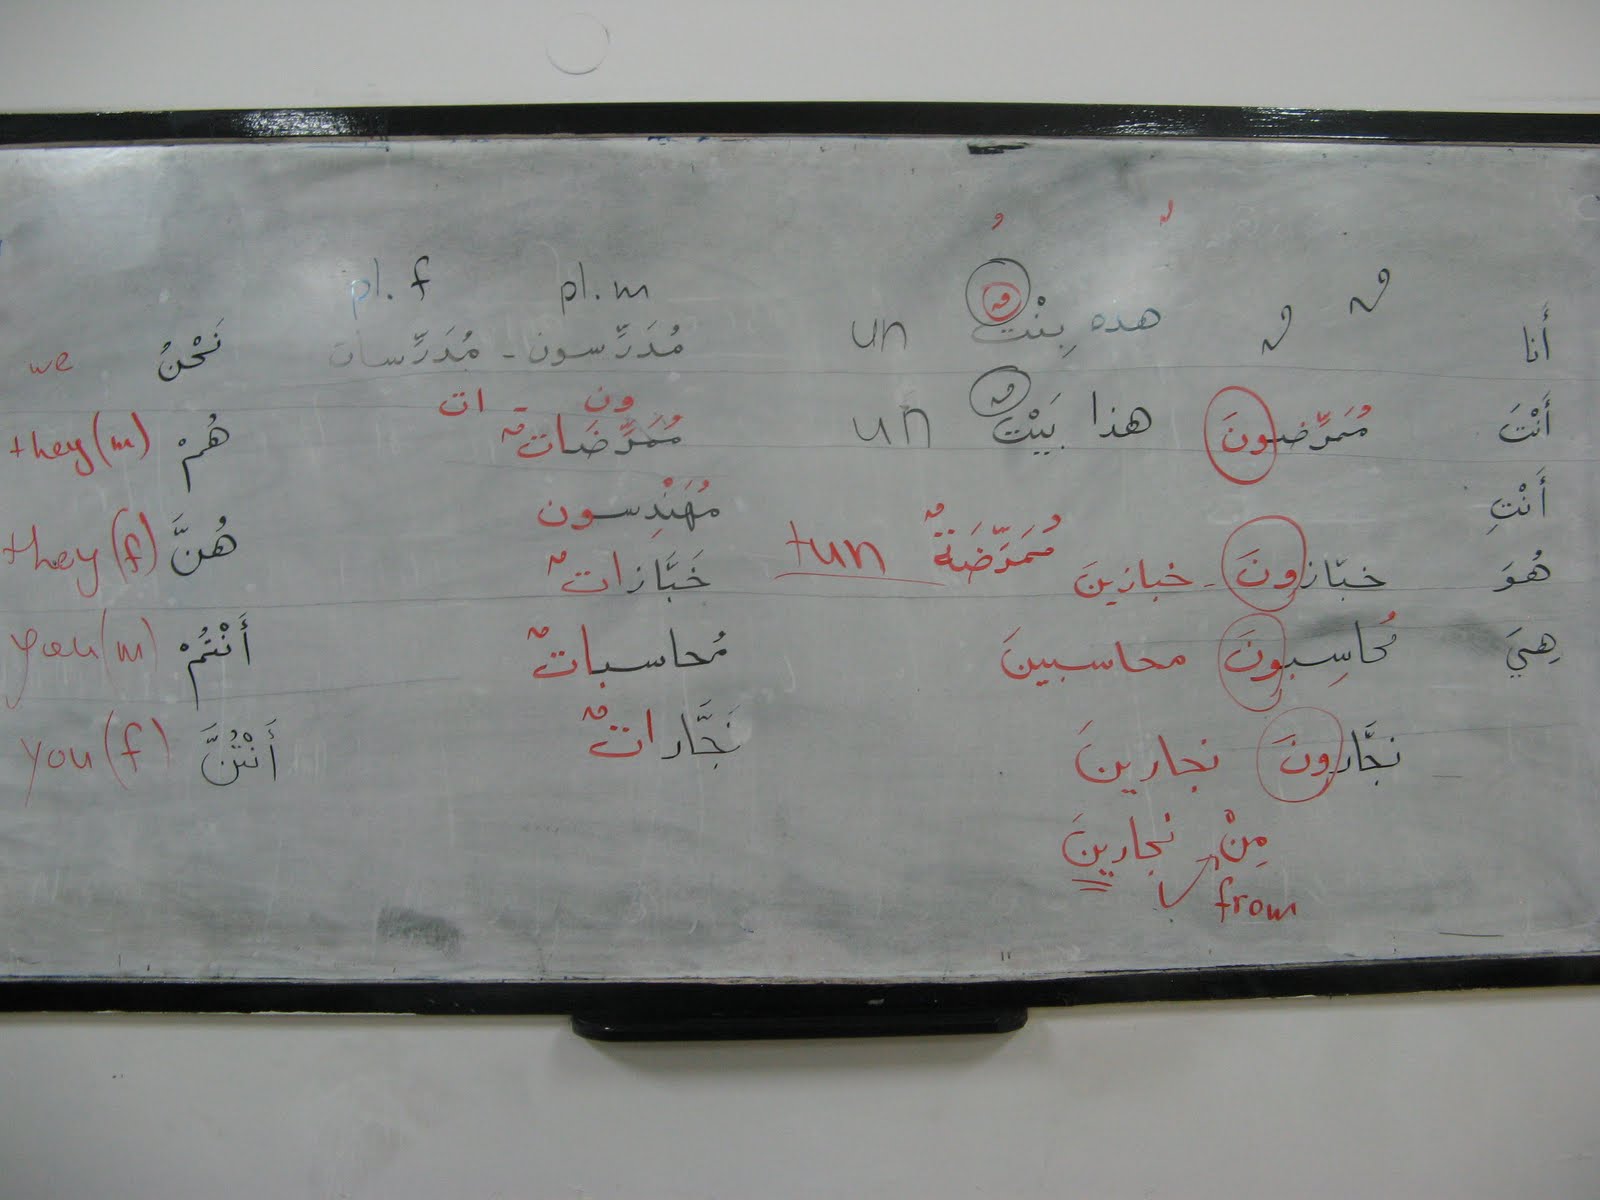 أَنا
أَنْتَ
أَنْتِ
هُوَ
هِيَ
مُمَرِّضونَ
خبّازونَ - خبازينَ
مُحاسِبونَ محاسبينَ
نجَّارونَ نجارينَ
مِنْ نجارينَ
from
هذه بِنْتٌ un
هذا بَيْتٌ un
مُمَرِّضَةٌ tun
pl. m pl. f
مُدَرِّسون - مُدَرِّسات
ون - ات
مُمَرِّضَاتٌ
مُهَنْدِسون
خَبَّازاتٌ
مُحاسباتٌ
نَجَّاراتٌ
نَحْنُ we
هُمْ they (m)
هُنَّ they (f)
أَنْتُمْ you (m)
أَنْتُنَّ you (f)